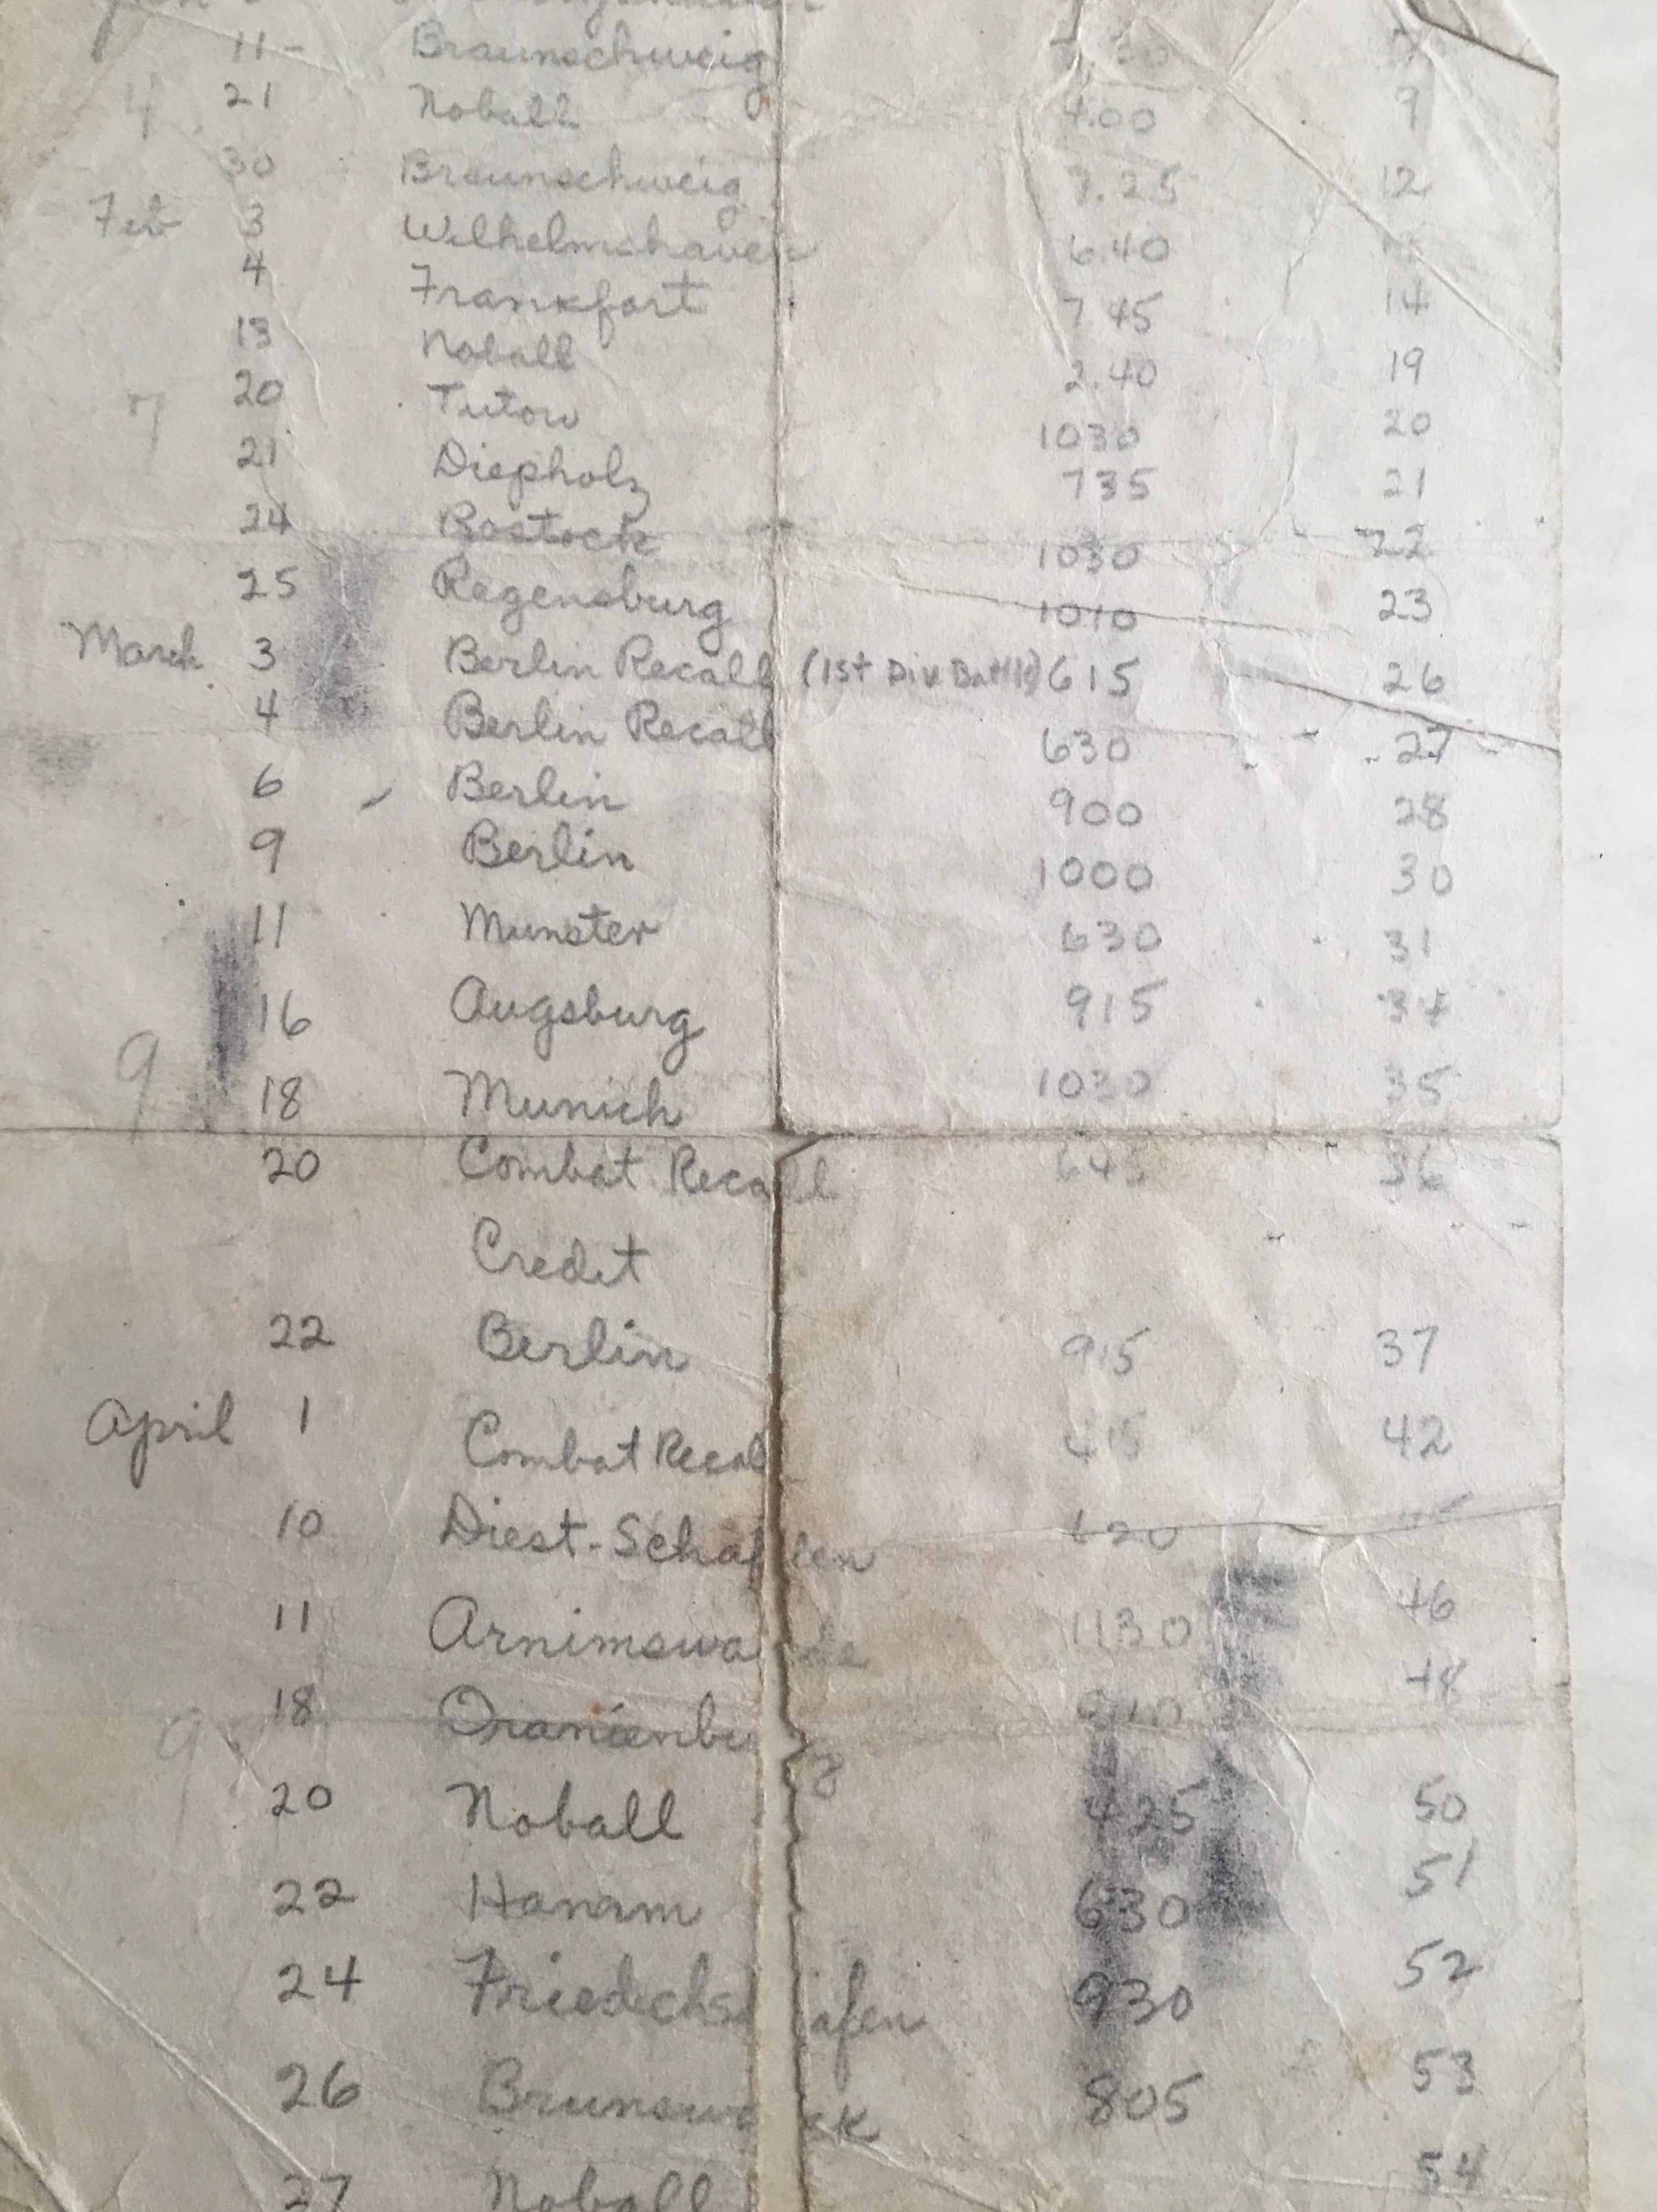 11 - Braunschweig
4 21 Noball 4.00 9
30 Braunschweig 7.25 12
Feb 3 Wilhelmshaven 6.40
4 Frankfort 7 45 14
13 Noball 2.40 19
7 20 Tutow 1030 20
21 Diepholz 735 21
24 Rostock 1030 22
25 Regensburg 1010 23
March 3 Berlin Recall (1st Div Battle) 615 26
4 Berlin Recall 630 27
6 Berlin 900 28
9 Berlin 1000 30
11 Munster 630 31
16 Augsburg 915 34
9 18 Munich 1030 35
20 Combat Recall 645 36
Credit
22 Berlin 915 37
April 1 Combat Recall 415 42
10 Diest-Schaflen 620 45
11 Arnimswalde 1130 46
9 18 Oranienburg 48
20 Noball 425 50
22 Hanam 630 51
24 Friedichshafen 930 52
26 Brunswick 805 53
27 Noball 54